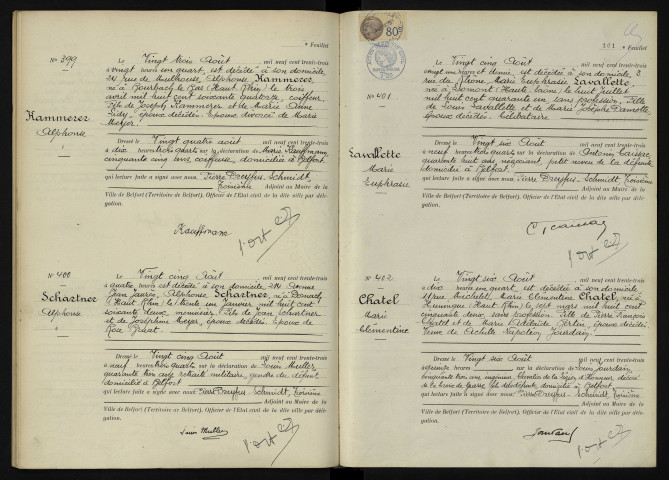 * Feuillet
N° 399
Kammerer
Alphonse
Le Vingt trois Août mil neuf cent trente-trois
à vingt heures un quart, est décédé à son domicile,
24 rue de Mulhouse, Alphonse Kammerer,
né à Bourbach le Bas (Haut Rhin) le trois
avril mil huit cent soixante quatorze, coiffeur,
fils de Joseph Kammerer et de Marie Anne
époux décédés. Époux divorcé de Marie
Dressé le Vingt quatre août mil neuf cent trente-trois
à dix heures trois quarts sur la déclaration de Marie Kauffmann,
cinquante cinq ans, coiffeuse, domiciliée à Belfort
qui lecture faite a signé avec nous Pierre Dreyfus-Schmidt,
troisième Adjoint au Maire de la
Ville de Belfort (Territoire de Belfort), Officier de l'Etat civil de la dite ville par délé-
gation.
Kauffmann
N° 400
Schartner
Alphonse
Le Vingt cinq Août mil neuf cent trente-trois
à quatre heures est décédé à son domicile, 214 Avenue
Jean Jaurès, Alphonse Schartner, né à
(Haut Rhin) le trente un janvier mil huit cent
soixante deux, menuisier, fils de Jean Schartner
et de Joséphine Meyer, époux décédés. Époux de
Rose
Dressé le Vingt cinq Août mil neuf cent trente-trois
à neuf heures trois quarts sur la déclaration de Louis Muller,
quarante trois ans, retraité militaire, gendre du défunt
domicilié à Belfort
qui lecture faite a signé avec nous Pierre Dreyfus-Schmidt, troisième
Adjoint au Maire de la
Ville de Belfort (Territoire de Belfort), Officier de l'Etat civil de la dite ville par délé-
gation.
Louis Muller
80c
101 * Feuillet
N° 401
Lavallotte
Marie
Euphrasie
Le Vingt cinq Août mil neuf cent trente-trois
vingt une heures et demie, est décédée à son domicile, 3
rue du Rhône, Marie Euphrasie Lavallotte,
née à Lomont (Haute Saône) le huit juillet
mil huit cent quarante cinq, sans profession, fille
de Louis Lavallotte et de Marie Josèphe
époux décédés. Célibataire
Dressé le Vingt six Août mil neuf cent trente-trois
à neuf heures trois quarts sur la déclaration de Antonin
quarante huit ans, négociant, petit neveu de la défunte
domicilié à Belfort
qui lecture faite a signé avec nous Pierre Dreyfus-Schmidt, troisième
Adjoint au Maire de la
Ville de Belfort (Territoire de Belfort), Officier de l'Etat civil de la dite ville par délé-
gation.
N° 402
Chatel
Marie
Clémentine
Le Vingt six Août mil neuf cent trente-trois
à dix heures un quart, est décédée à son domicile,
11 rue Mechelet, Marie Clémentine Chatel, née à
(Haut Rhin) le sept mars mil huit cent
cinquante deux, sans profession. Fille de Pierre François
Chatel et de Marie Adélaïde Perlin, époux décédés.
Veuve de Achille Napoléon Jourdain
Dressé le Vingt six Août mil neuf cent trente-trois
à quinze heures sur la déclaration de Louis Jourdain,
cinquante trois ans, ingénieur, Chevalier de la Légion d'Honneur, décoré
de la Croix de Guerre, fils de la défunte, domicilié à Belfort
qui lecture faite a signé avec nous Pierre Dreyfus-Schmidt, troisième
Adjoint au Maire de la
Ville de Belfort (Territoire de Belfort), Officier de l'Etat civil de la dite ville par délé-
gation.